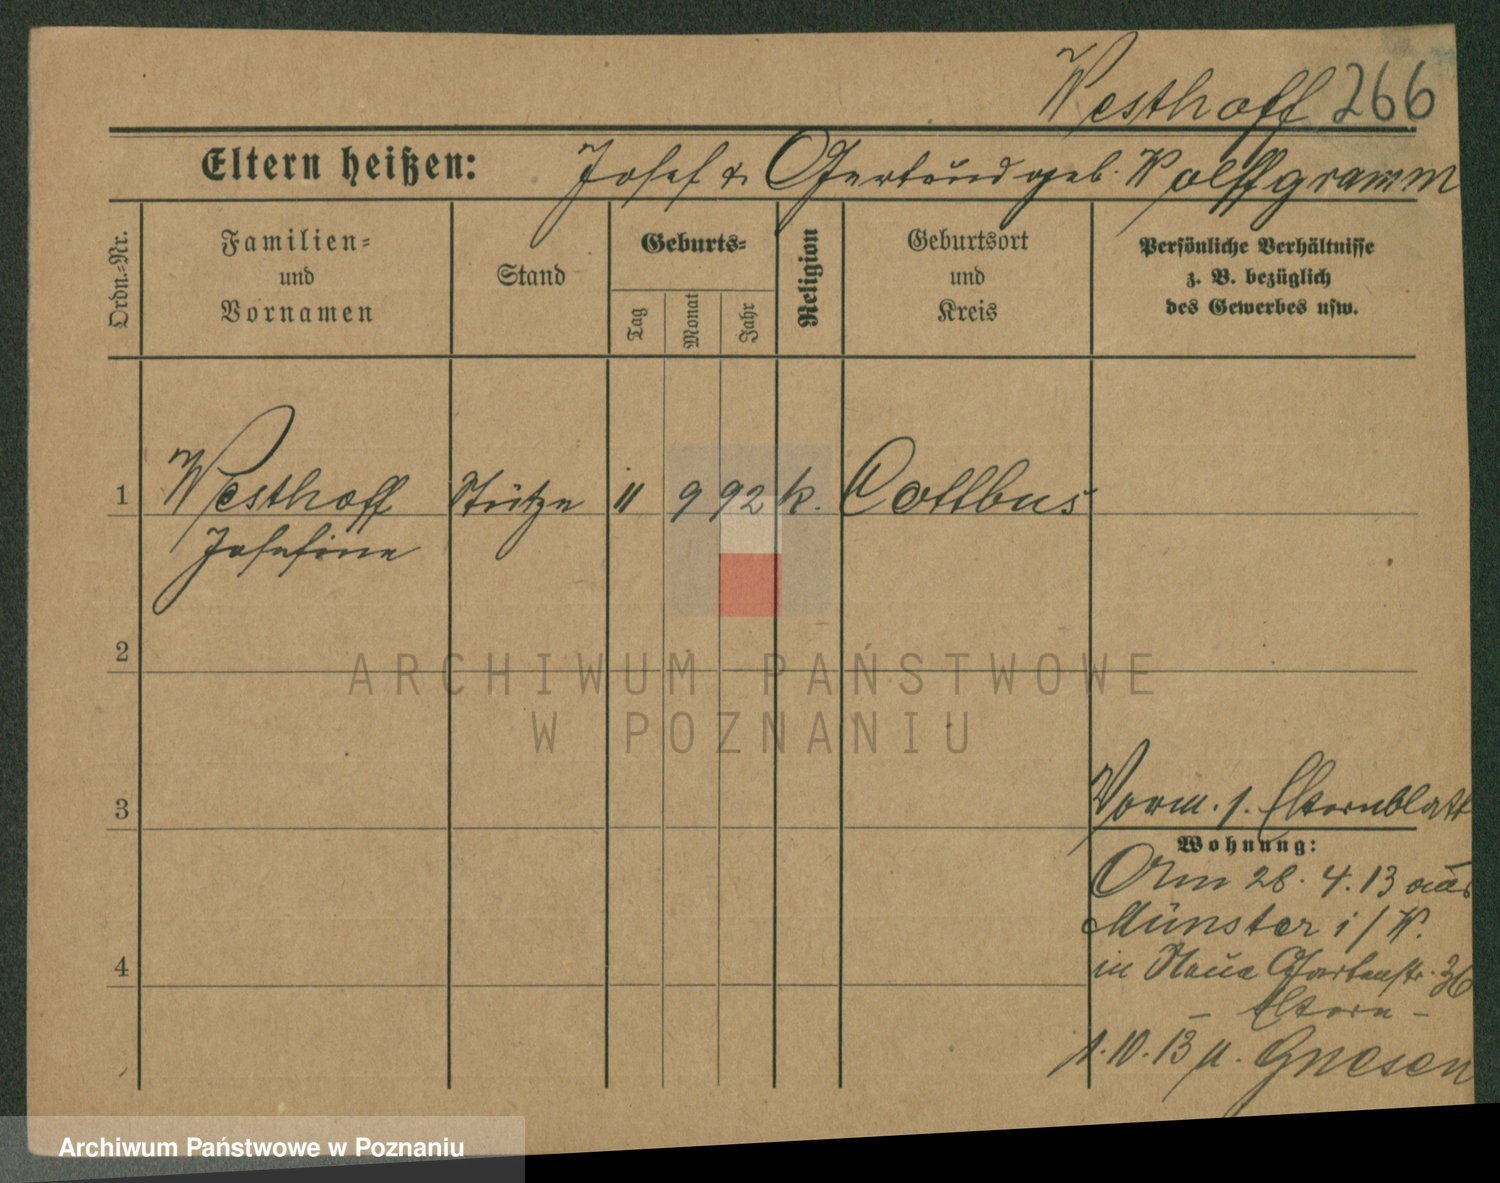 Westhoff 266
Eltern heißen: Josef u. Gertrud geb. Wolffgramm
Ordn.=Nr.
Familien=
und
Vornamen
Stand
Geburts=
Tag
Monat
Jahr
Religion
Geburtsort
und
Kreis
Persönliche Verhältnisse
z. B. bezüglich
des Gewerbes usw.
1 Westhoff Stütze 11 9 92 k. Cottbus
Josefine
2
ARCHIWUM PAŃSTWOWE
W POZNANIU
3
Vorm. s. Elternblatt
Wohnung:
Am 28. 4. 13 aus
Münster i/W.
4
in Neue Gartenstr. 36
– Eltern –
1. 10. 13 n. Gnesen
Archiwum Państwowe w Poznaniu